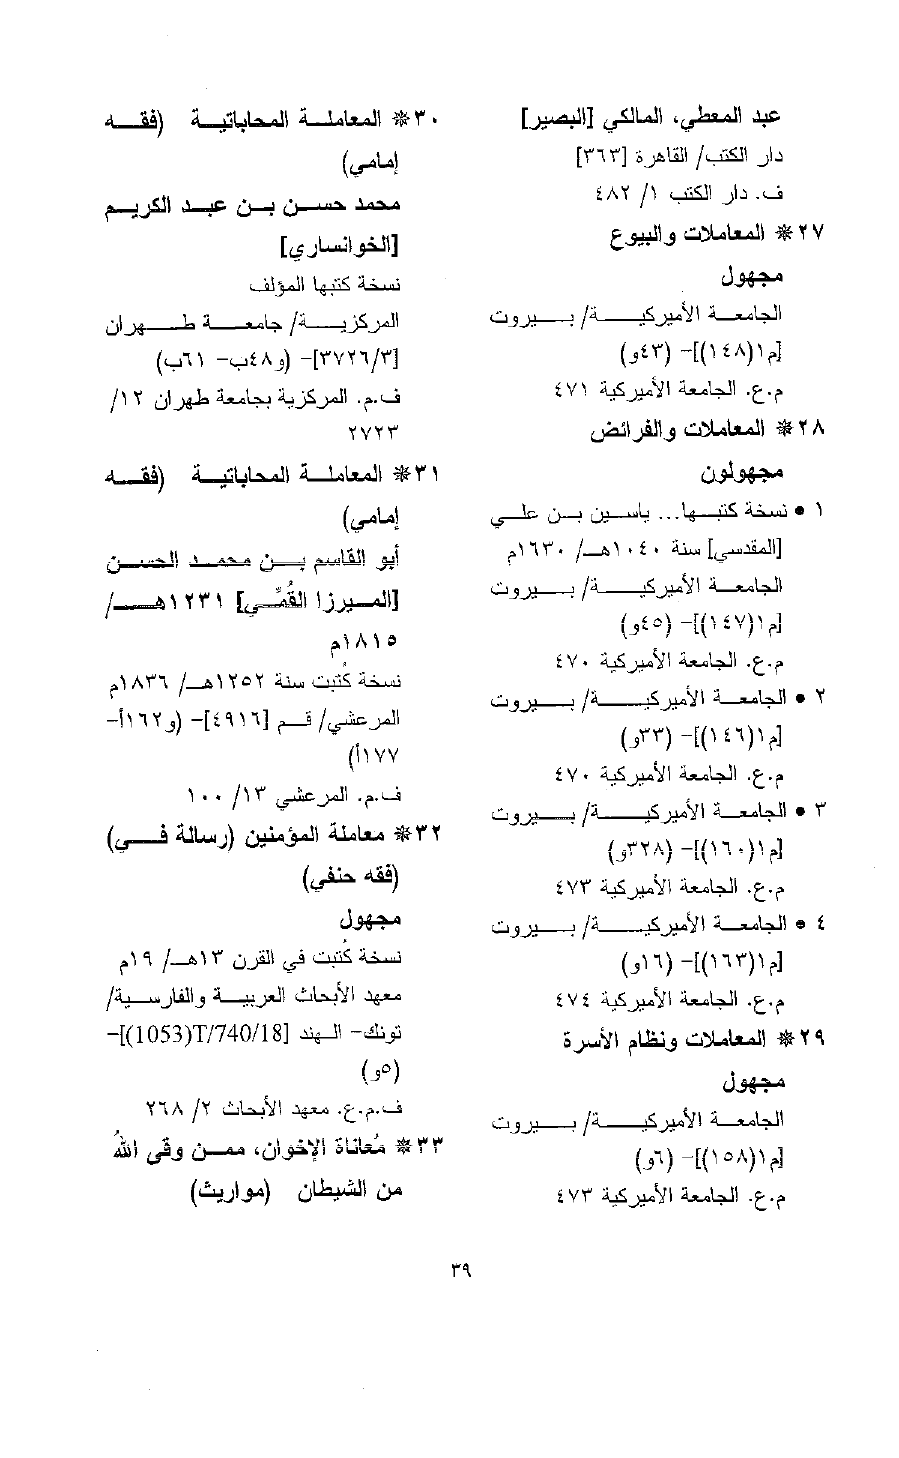 عبد المعطي، المالكي [البصير]
دار الكتب/ القاهرة [٣٦٣]
ف. دار الكتب ١/ ٤٨٢
٢٧❊ المعاملات والبيوع
مجهول
الجامعة الأميركية/ بيروت
[م١(١٤٨)]- (٤٣و)
م.ع. الجامعة الأميركية ٤٧١
٢٨❊ المعاملات والفرائض
مجهولون
١ • نسخة كتبها... ياسين بن علي
[المقدسي] سنة ١٠٤٠هـ/ ١٦٣٠م
الجامعة الأميركية/ بيروت
[م١(١٤٧)]- (٤٥و)
م.ع. الجامعة الأميركية ٤٧٠
٢ • الجامعة الأميركية/ بيروت
[م١(١٤٦)]- (٣٣و)
م.ع. الجامعة الأميركية ٤٧٠
٣ • الجامعة الأميركية/ بيروت
[م١(١٦٠)]- (٣٢٨و)
م.ع. الجامعة الأميركية ٤٧٣
٤ • الجامعة الأميركية/ بيروت
[م١(١٦٣)]- (١٦و)
م.ع. الجامعة الأميركية ٤٧٤
٢٩❊ المعاملات ونظام الأسرة
مجهول
الجامعة الأميركية/ بيروت
[م١(١٥٨)]- (٦و)
م.ع. الجامعة الأميركية ٤٧٣
٣٠❊ المعاملة المحاباتية (فقه
إمامي)
محمد حسن بن عبد الكريم
[الخوانساري]
نسخة كتبها المؤلف
المركزية/ جامعة طهران
[٣٧٢٦/٣]- (و٤٨ب- ٦١ب)
ف.م. المركزية بجامعة طهران ١٢/
٢٧٢٣
٣١❊ المعاملة المحاباتية (فقه
إمامي)
أبو القاسم بن محمد الحسن
[الميرزا القُمّي] ١٢٣١هـ/
١٨١٥م
نسخة كُتبت سنة ١٢٥٢هـ/ ١٨٣٦م
المرعشي/ قم [٤٩١٦]- (و١٦٢أ-
١٧٧أ)
ف.م. المرعشي ١٣/ ١٠٠
٣٢❊ معاملة المؤمنين (رسالة في)
(فقه حنفي)
مجهول
نسخة كُتبت في القرن ١٣هـ/ ١٩م
معهد الأبحاث العربية والفارسية/
تونك- الهند [1053)T/740/18)]-
(٥و)
ف.م.ع. معهد الأبحاث ٢/ ٢٦٨
٣٣❊ مُعاناة الإخوان، ممن وقى اللهُ
من الشيطان (مواريث)
٣٩